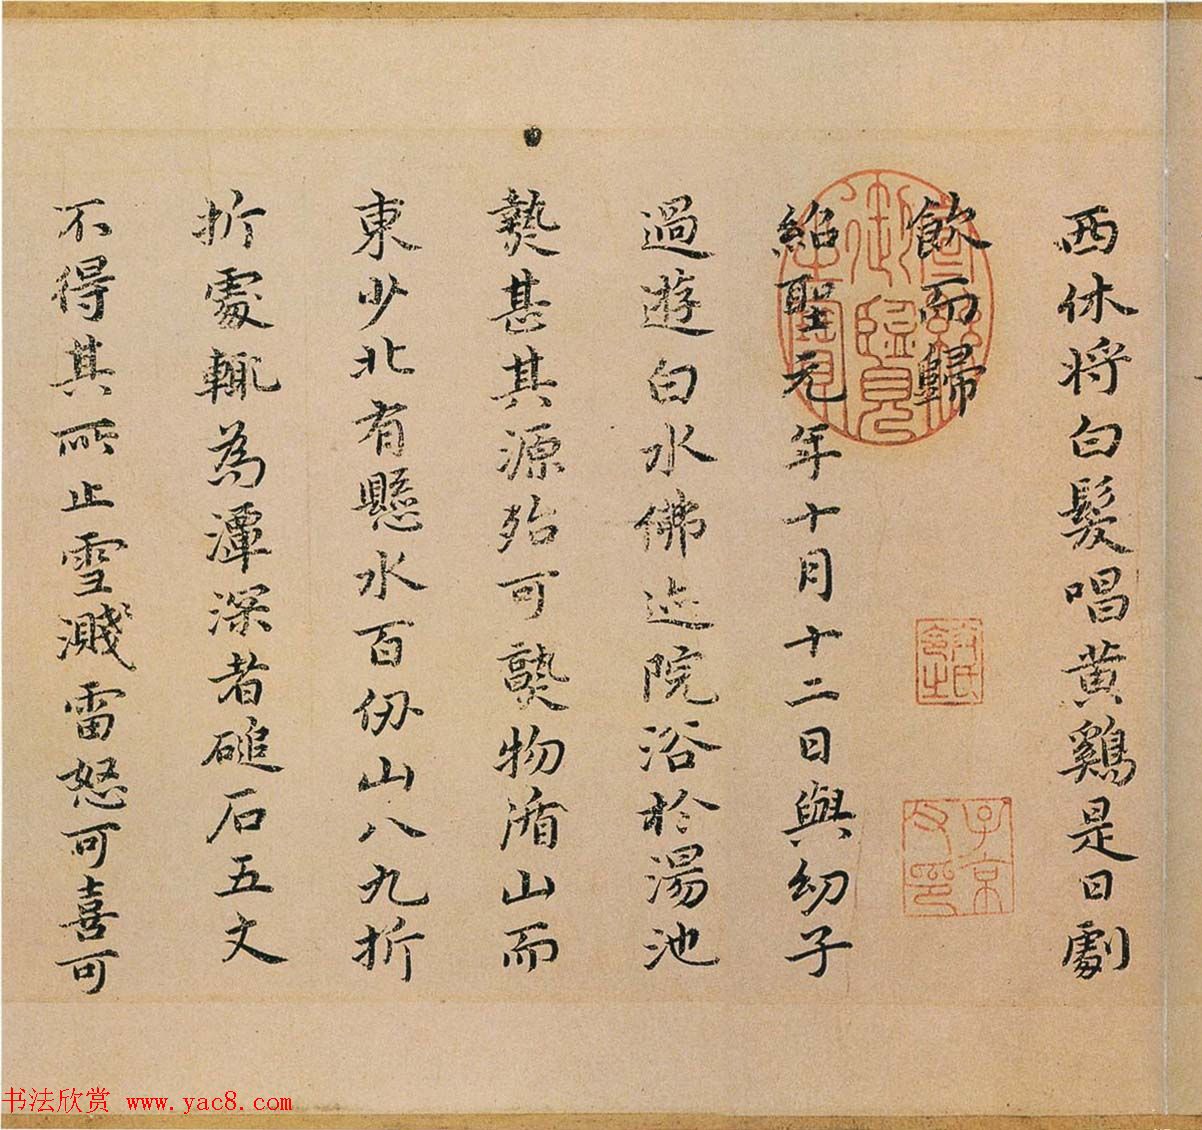 西休将白髮唱黄鷄是日劇
飲而歸
紹聖元年十月十二日與幼子
過遊白水佛迹院浴於湯池
𤍠甚其源殆可𤍠物循山而
東少北有懸水百仞山八九折
折處輒為潭深者磓石五丈
不得其所止雪濺雷怒可喜可
御覽
子京
书法欣赏 www.yac8.com